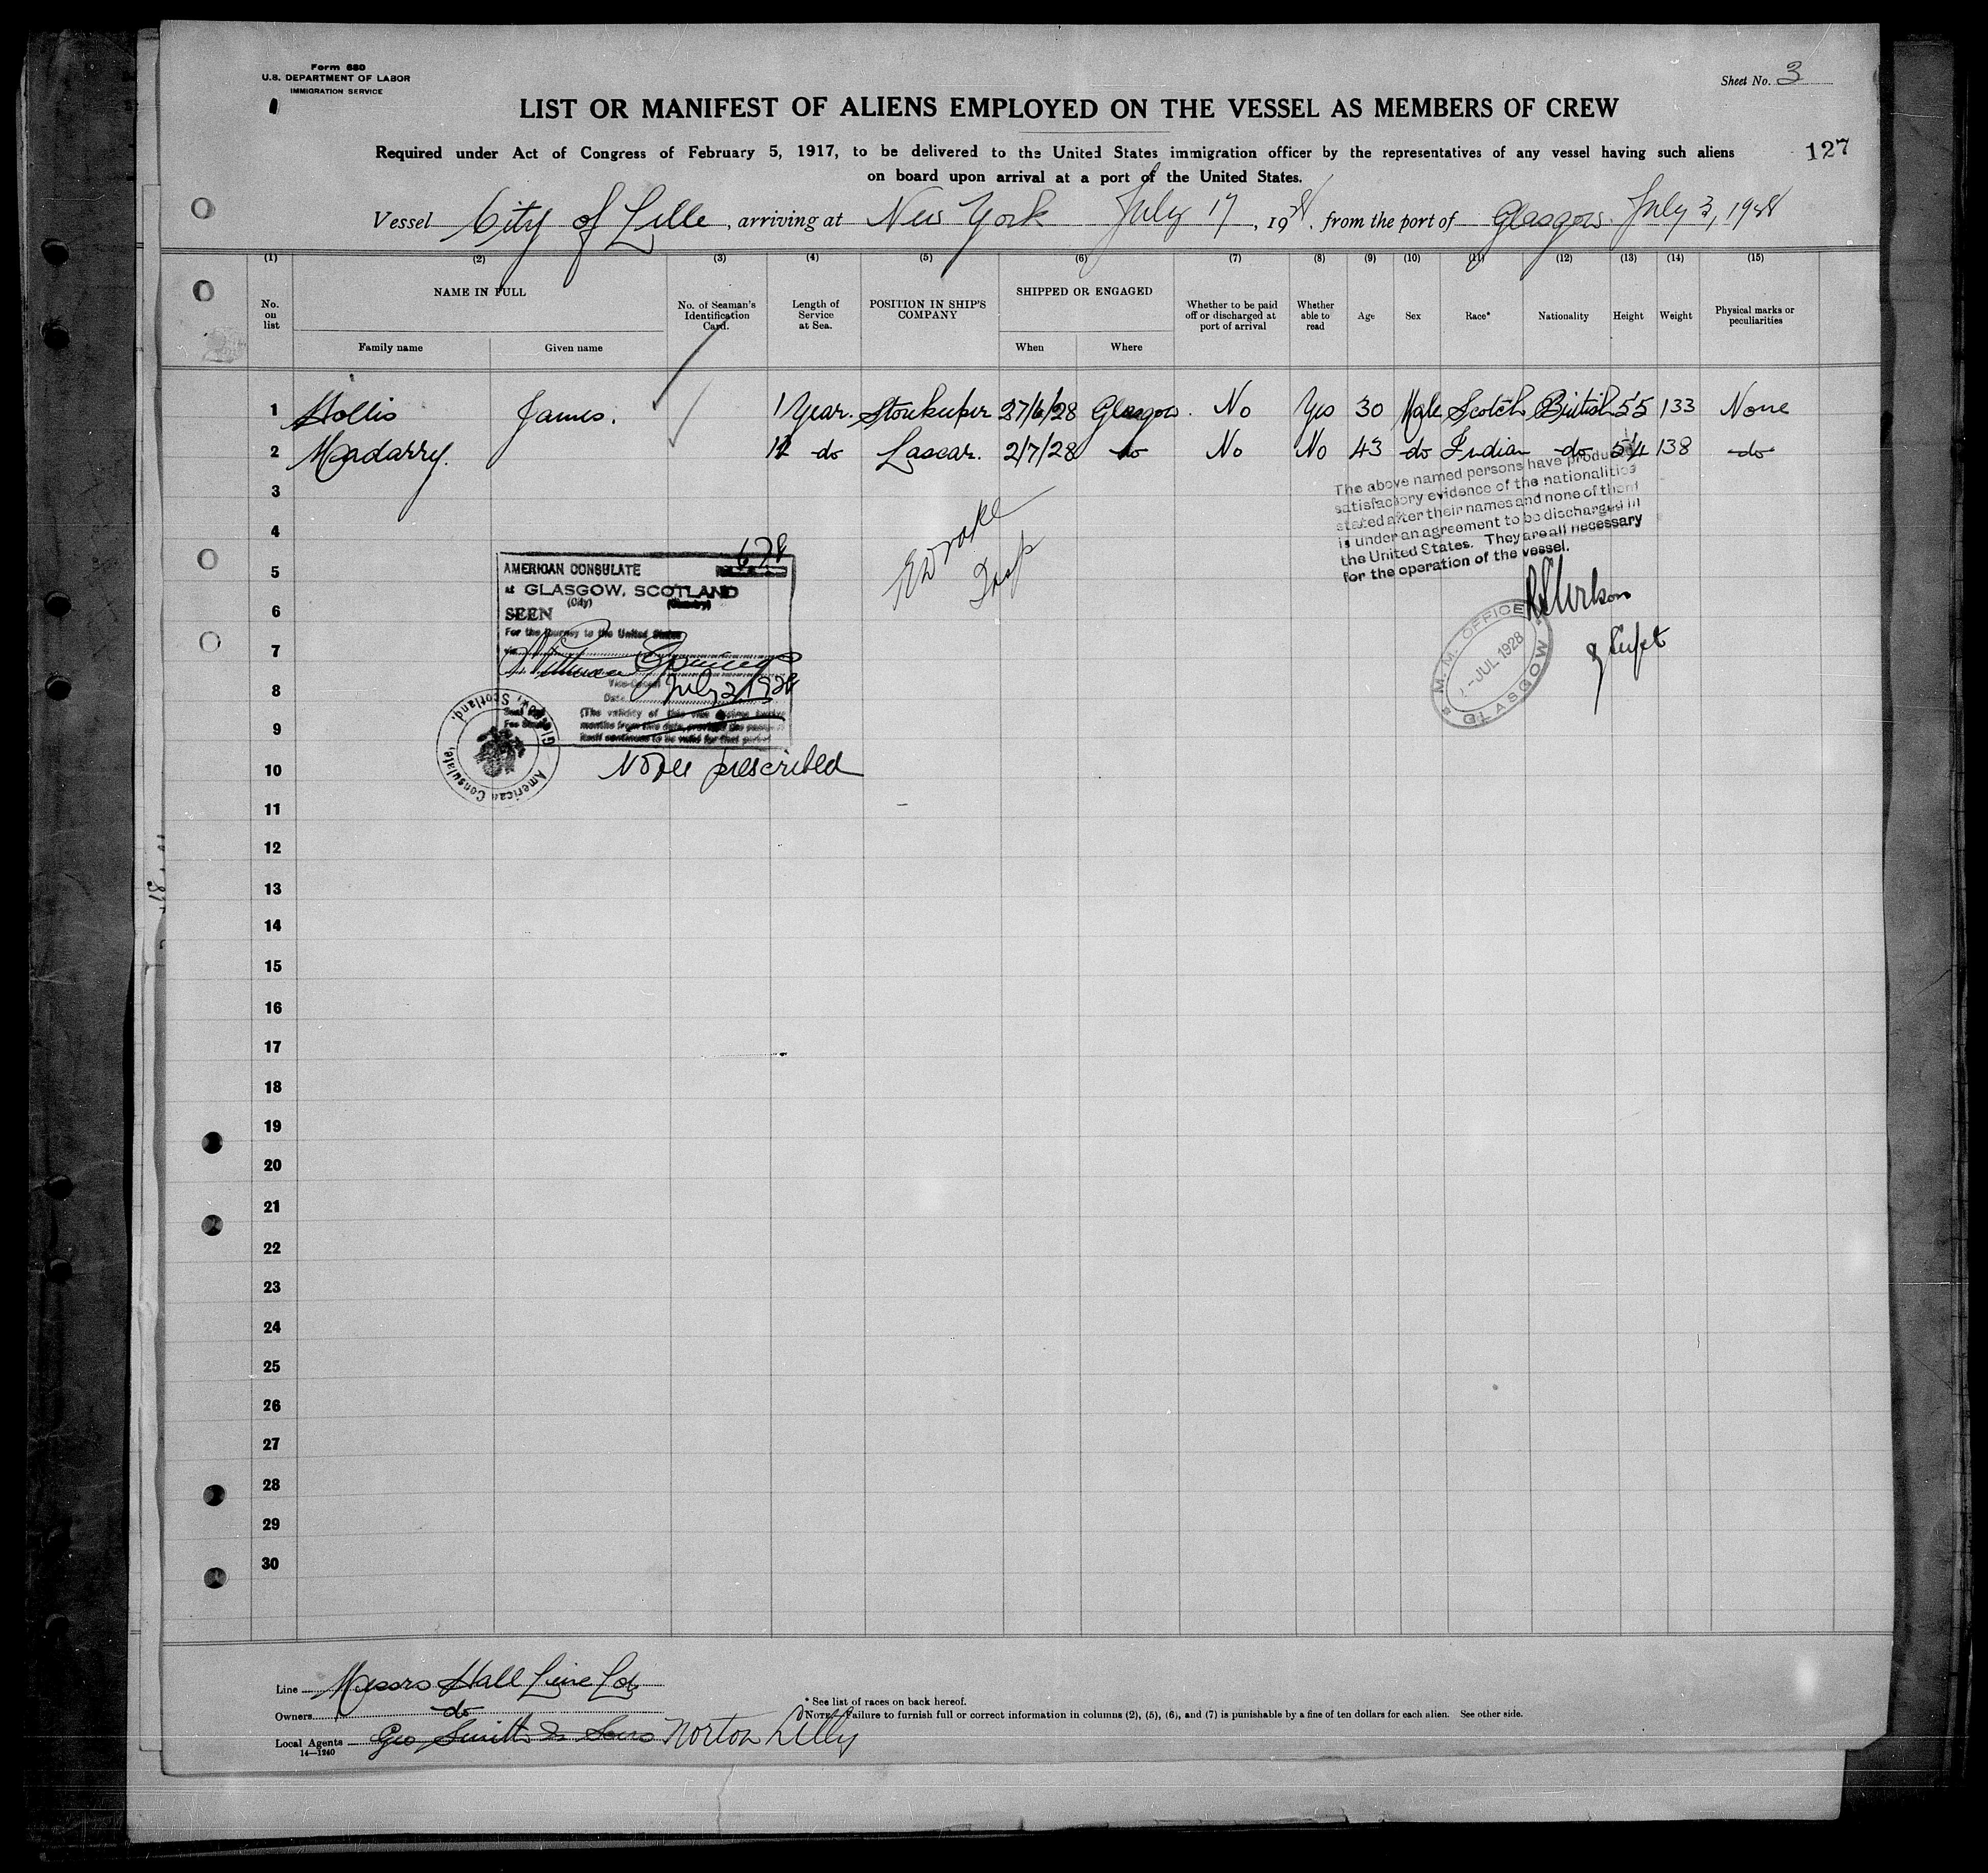 Form 680
U.S. DEPARTMENT OF LABOR
IMMIGRATION SERVICE
Sheet No. 3
LIST OR MANIFEST OF ALIENS EMPLOYED ON THE VESSEL AS MEMBERS OF CREW
Required under Act of Congress of February 5, 1917, to be delivered to the United States immigration officer by the representatives of any vessel having such aliens
on board upon arrival at a port of the United States.
127
Vessel City of Lille, arriving at New York July 17, 1928, from the port of Glasgow. July 3, 1928
(1) (2) (3) (4) (5) (6) (7) (8) (9) (10) (11) (12) (13) (14) (15)
No. on list NAME IN FULL Family name Given name No. of Seaman's Identification Card. Length of Service at Sea. POSITION IN SHIP'S COMPANY SHIPPED OR ENGAGED When Where Whether to be paid off or discharged at port of arrival Whether able to read Age Sex Race* Nationality Height Weight Physical marks or peculiarities
1 Hollis James. 1 Year. Storekeeper 27/6/28 Glasgow. No Yes 30 Male Scotch British 5 5 133 None
2 Madarry. 12 do Lascar. 2/7/28 do No No 43 do Indian do 5 4 138 do
3
4
5
6
7
8
9
10
11
12
13
14
15
16
17
18
19
20
21
22
23
24
25
26
27
28
29
30
The above named persons have produced
satisfactory evidence of the nationalities
stated after their names and none of them
is under an agreement to be discharged in
the United States. They are all necessary
for the operation of the vessel.
M. M. OFFICE
-JUL 1928
GLASGOW
678
AMERICAN CONSULATE
at GLASGOW, SCOTLAND
(City) (Country)
SEEN
For the journey to the United States
via
Vice-Consul
Date July 2 1928
(The validity of this visa expires twelve
months from this date, provided the passport
itself continues to be valid for that period
American Consulate, Glasgow, Scotland.
No fee prescribed
Line Messrs Hall Line Ld
Owners do
Local Agents Geo Smith & Sons Norton Lilly
14—1240
* See list of races on back hereof.
NOTE.—Failure to furnish full or correct information in columns (2), (5), (6), and (7) is punishable by a fine of ten dollars for each alien. See other side.